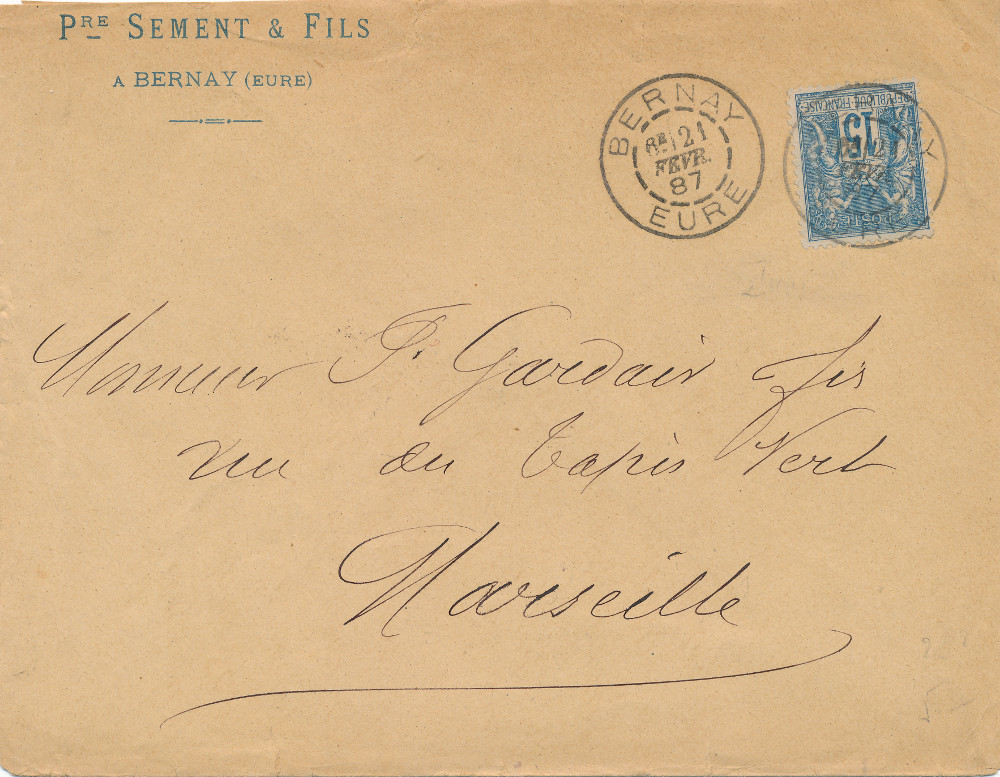 Pre SEMENT & FILS
A BERNAY (EURE)
BERNAY
6E 21
FEVR.
87
EURE
REPUBLIQUE FRANCAISE
15
POSTE
Monsieur F. Gardair fils
rue du Tapis Vert
Marseille